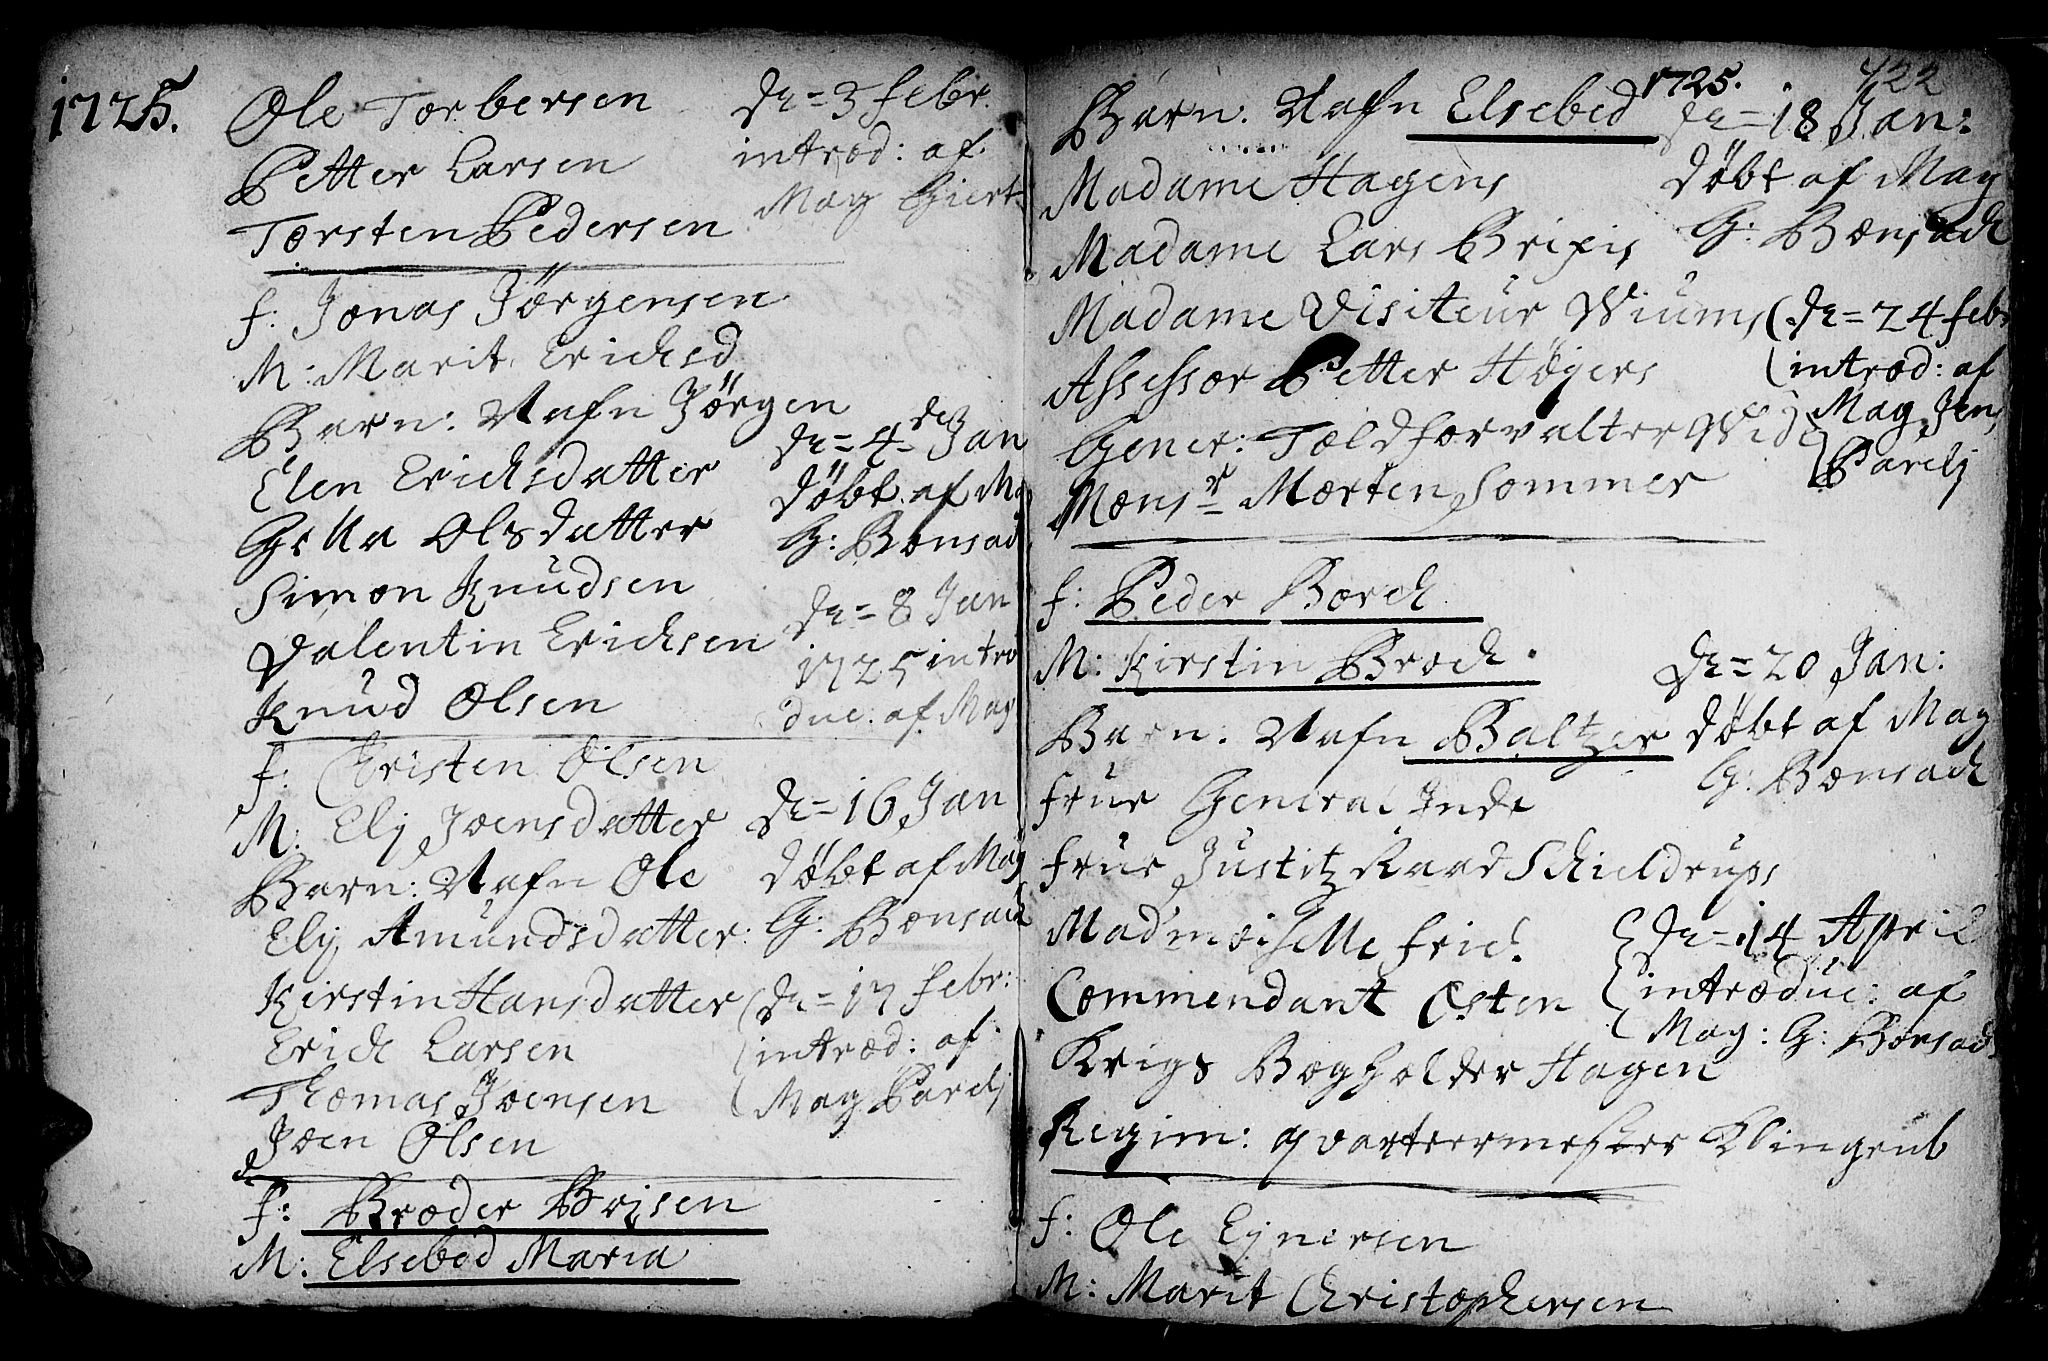 1725.
Ole Torbersen
Petter Larsen
Torsten Pedersen
d= 3 febr.
introd: af
Mag Giert
f: Jonas Jörgensen
M: Marit Ericksd
Barn: Nafn Jörgen
Elen Ericksdatter
Olsdatter
Simon Knudsen
Valentin Ericksen
Knud Olsen
d= 4de Jan
döbt af Mag
G: Bonsach
d= 8 Jan
1725 intro
duc. af Mag
f: Christen Olsen
M: Elj Joensdatter
Barn: Nafn Ole
Elj Amundsdatter
Kirstin Hansdatter
Erick Larsen
Thomas Joensen
Joen Olsen
d= 16 Jan
döbt af Mag
G: Bonsach
d= 17 febr:
introd: af
Mag Parelj
f: Broder Brisen
M: Elsebed Maria
1725.
422
Barn: Nafn Elsebed
Madame Hagens
Madame Lars Brixis
Madame Visiteur Wiums
Assessor Petter Högers
Gener: Toldforvalter
Monsr Morten Sommer
d= 18 Jan:
döbt af Mag
G: Bonsach
d= 24 febr
introd: af
Mag Jens
Parelj
f: Peder Borch
M: Kirstin Broch.
Barn: Nafn Baltzer
frue General Inde
frue Justitz Raad Schieldrups
Madmoiselle frich.
Commendant Osten
Krigs Bogholder Hagen
Regim: qvarteermester Klingenb
d= 20 Jan:
döbt af Mag
G: Bonsach
d= 14 April
introduc: af
Mag: G: Bonsach
f: Ole Ejnersen
M: Marit Christophersen